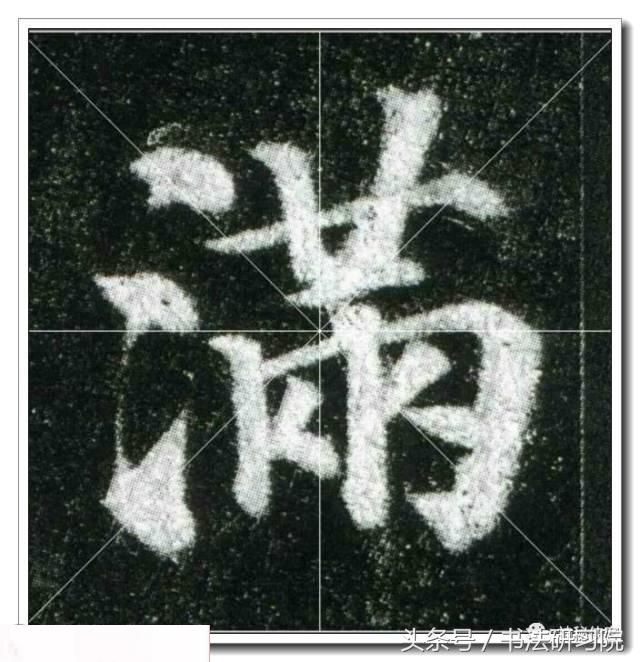 满
头条号 / 书法研习院